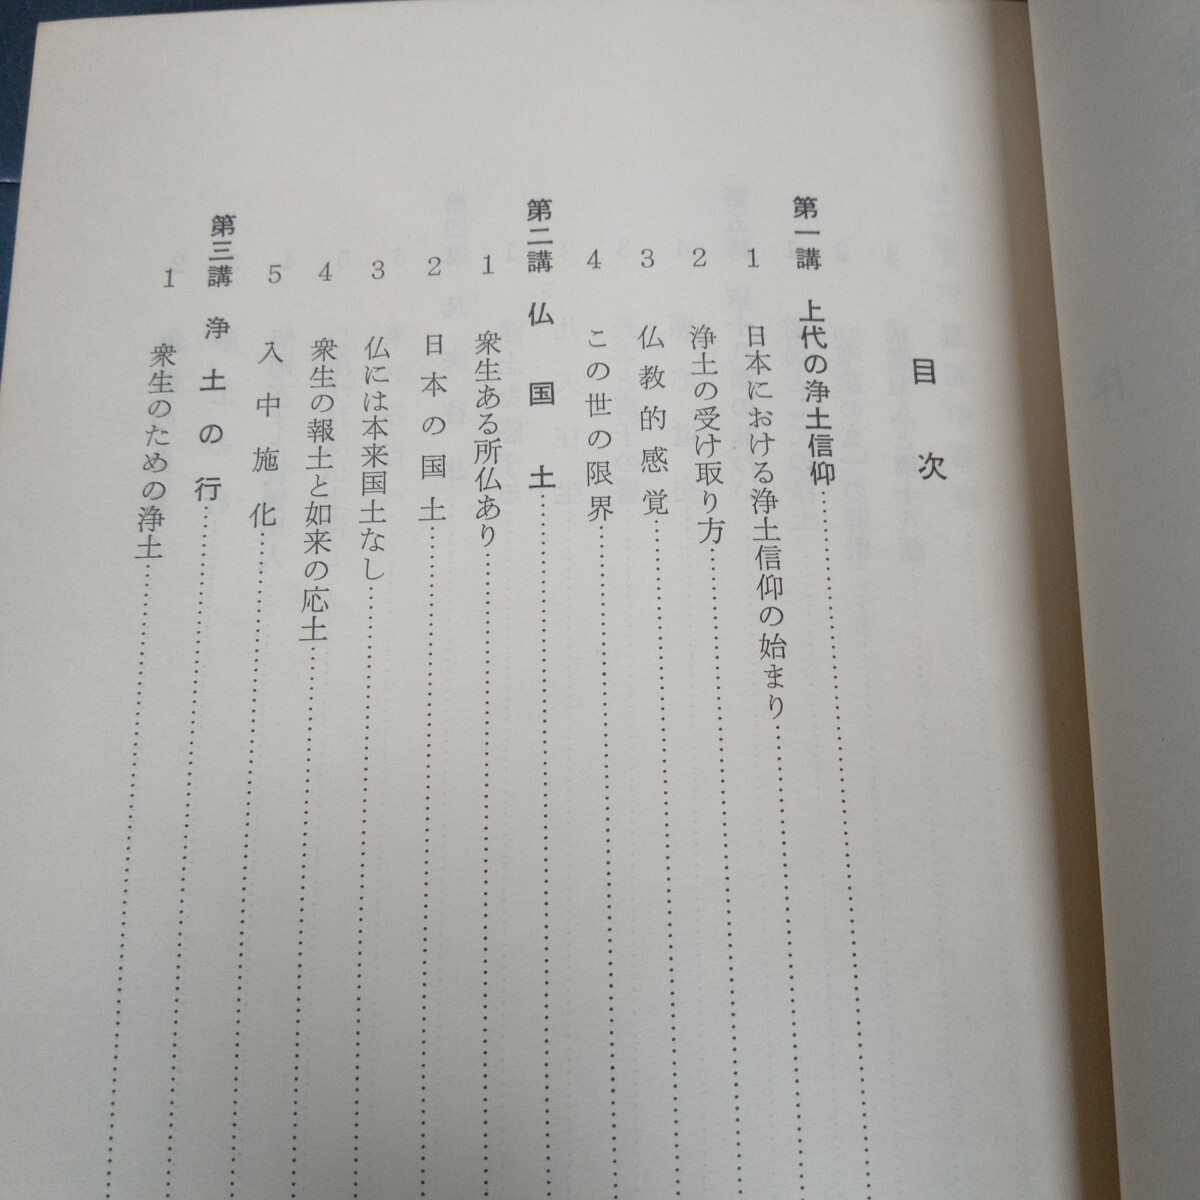 目次
第一講 上代の浄土信仰
1 日本における浄土信仰の始まり
2 浄土の受け取り方
3 仏教的感覚
4 この世の限界
第二講 仏国土
1 衆生ある所仏あり
2 日本の国土
3 仏には本来国土なし
4 衆生の報土と如来の応土
5 入中施化
第三講 浄土の行
1 衆生のための浄土